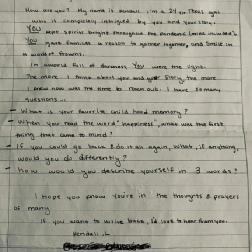 How are you? My name is Kendall. I'm a 24 yr. Texas girl
who is completely intrigued by you and your story.
You kept spirits bright throughout the pandemic
You gave families a reason to gather together, and smile in
a world of frowns.
In a world full of darkness, You were the light.
The more I think about you and your story, the more
I knew now was the time to reach out. I have so many
questions...
- What is your favorite child hood memory?
- When you read the word "happiness", what was the first
thing that came to mind?
- If you could go back & do it all again, what, if anything,
would you do differently?
- How would you describe yourself in 3 words?
I hope you know you're in the thoughts & prayers
of many
If you want to write back, I'd love to hear from you.
Kendall